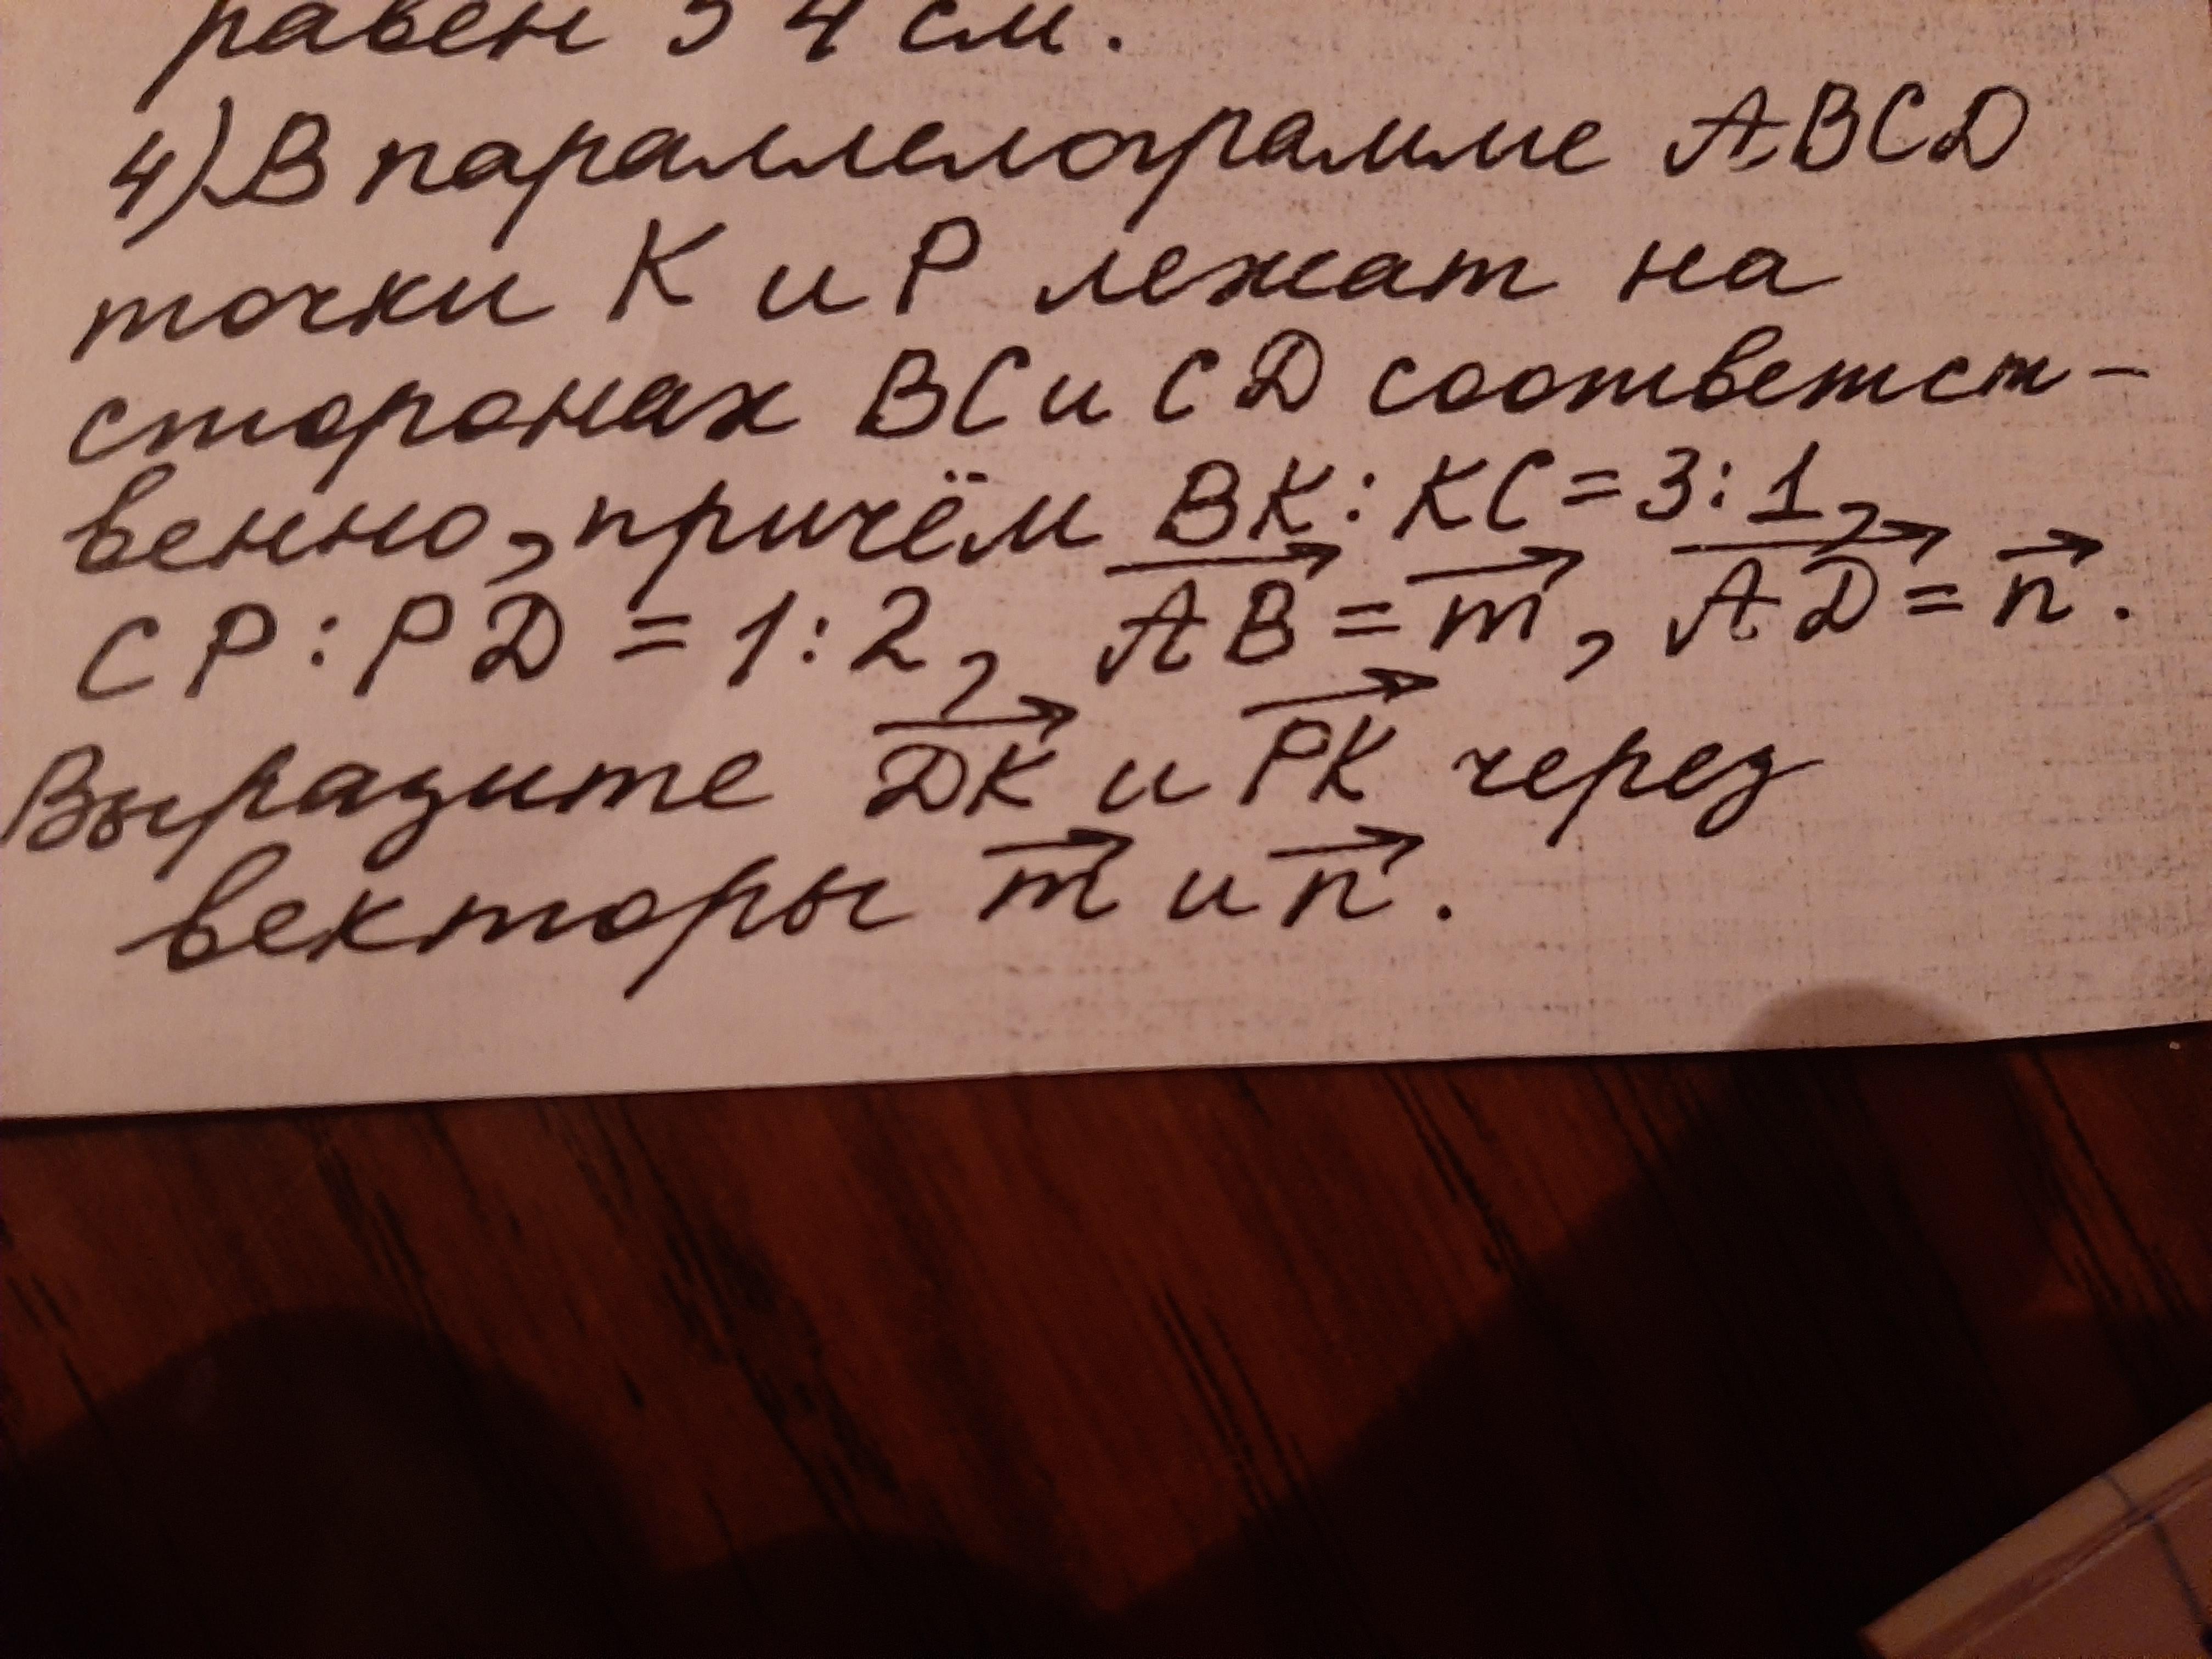 равен 54 см.
4) В параллелограмме ABCD
точки K и P лежат на
сторонах BC и CD соответст-
венно, причём BK : KC = 3 : 1,
CP : PD = 1 : 2, →AB = →m, →AD = →n.
Выразите →DK и →PK через
векторы →m и →n.